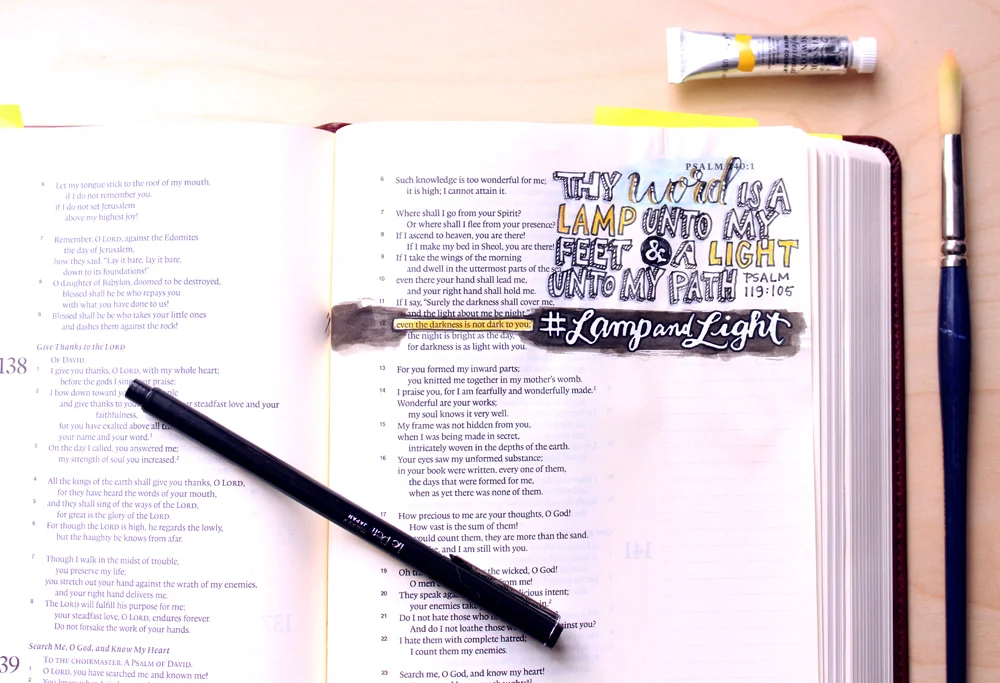 6 Let my tongue stick to the roof of my mouth,
if I do not remember you,
if I do not set Jerusalem
above my highest joy!
7 Remember, O LORD, against the Edomites
the day of Jerusalem,
how they said, "Lay it bare, lay it bare,
down to its foundations!"
8 O daughter of Babylon, doomed to be destroyed,
blessed shall he be who repays you
with what you have done to us!
9 Blessed shall he be who takes your little ones
and dashes them against the rock!
Give Thanks to the LORD
138 OF DAVID.
1 I give you thanks, O LORD, with my whole heart;
before the gods I sing your praise;
2 I bow down toward
and give thanks to your steadfast love and your
faithfulness,
for you have exalted above all
your name and your word.1
3 On the day I called, you answered me;
my strength of soul you increased.2
4 All the kings of the earth shall give you thanks, O LORD,
for they have heard the words of your mouth,
5 and they shall sing of the ways of the LORD,
for great is the glory of the LORD.
6 For though the LORD is high, he regards the lowly,
but the haughty he knows from afar.
7 Though I walk in the midst of trouble,
you preserve my life;
you stretch out your hand against the wrath of my enemies,
and your right hand delivers me.
8 The LORD will fulfill his purpose for me;
your steadfast love, O LORD, endures forever.
Do not forsake the work of your hands.
Search Me, O God, and Know My Heart
39 TO THE CHOIRMASTER. A PSALM OF DAVID.
1 O LORD, you have searched me and known me!
2 You know when I
PSALM 140:1
6 Such knowledge is too wonderful for me;
it is high; I cannot attain it.
7 Where shall I go from your Spirit?
Or where shall I flee from your presence?
8 If I ascend to heaven, you are there!
If I make my bed in Sheol, you are there!
9 If I take the wings of the morning
and dwell in the uttermost parts of the sea,
10 even there your hand shall lead me,
and your right hand shall hold me.
11 If I say, "Surely the darkness shall cover me,
and the light about me be night,"
12 even the darkness is not dark to you;
the night is bright as the day,
for darkness is as light with you.
13 For you formed my inward parts;
you knitted me together in my mother's womb.
14 I praise you, for I am fearfully and wonderfully made.2
Wonderful are your works;
my soul knows it very well.
15 My frame was not hidden from you,
when I was being made in secret,
intricately woven in the depths of the earth.
16 Your eyes saw my unformed substance;
in your book were written, every one of them,
the days that were formed for me,
when as yet there was none of them.
17 How precious to me are your thoughts, O God!
How vast is the sum of them!
would count them, they are more than the sand.
and I am still with you.
19 Oh the wicked, O God!
O men from me!
20 They speak malicious intent;
your enemies take vain.2
21 Do I not hate those who
And do I not loathe those who against you?
22 I hate them with complete hatred;
I count them my enemies.
23 Search me, O God, and know my heart!
THY word IS A
LAMP UNTO MY
FEET & A LIGHT
UNTO MY PATH PSALM
119:105
#Lamp and Light
Le Pen
JAPAN